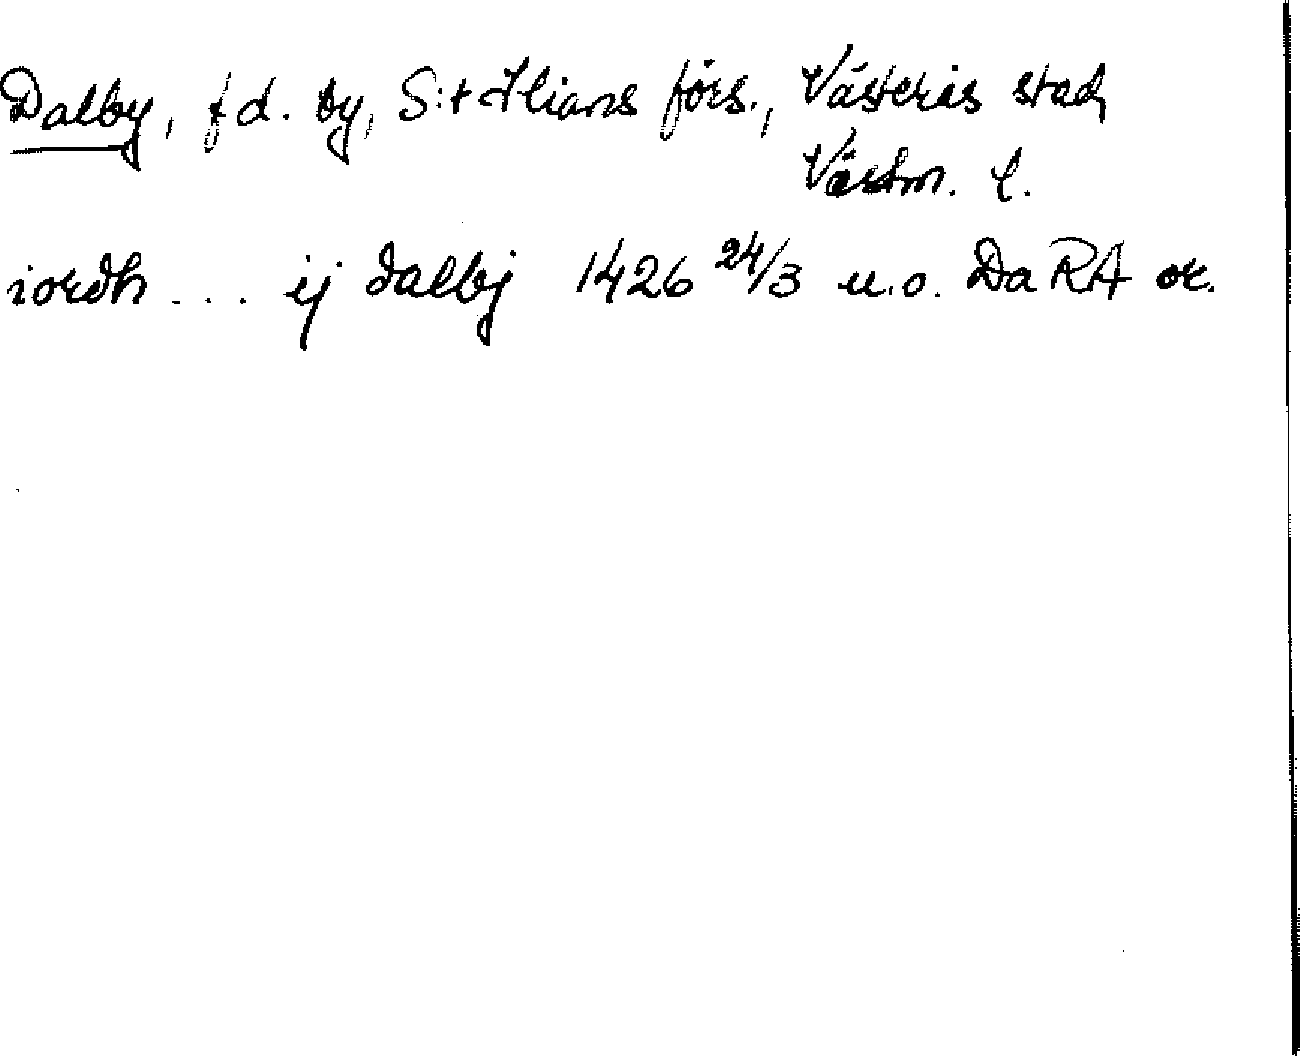 Dalby, f d. by, S:t Ilians förs., Västerås stad,
Västm. l.
iordh ... ij dalbj 1426 24/3 u.o. Da RA or.